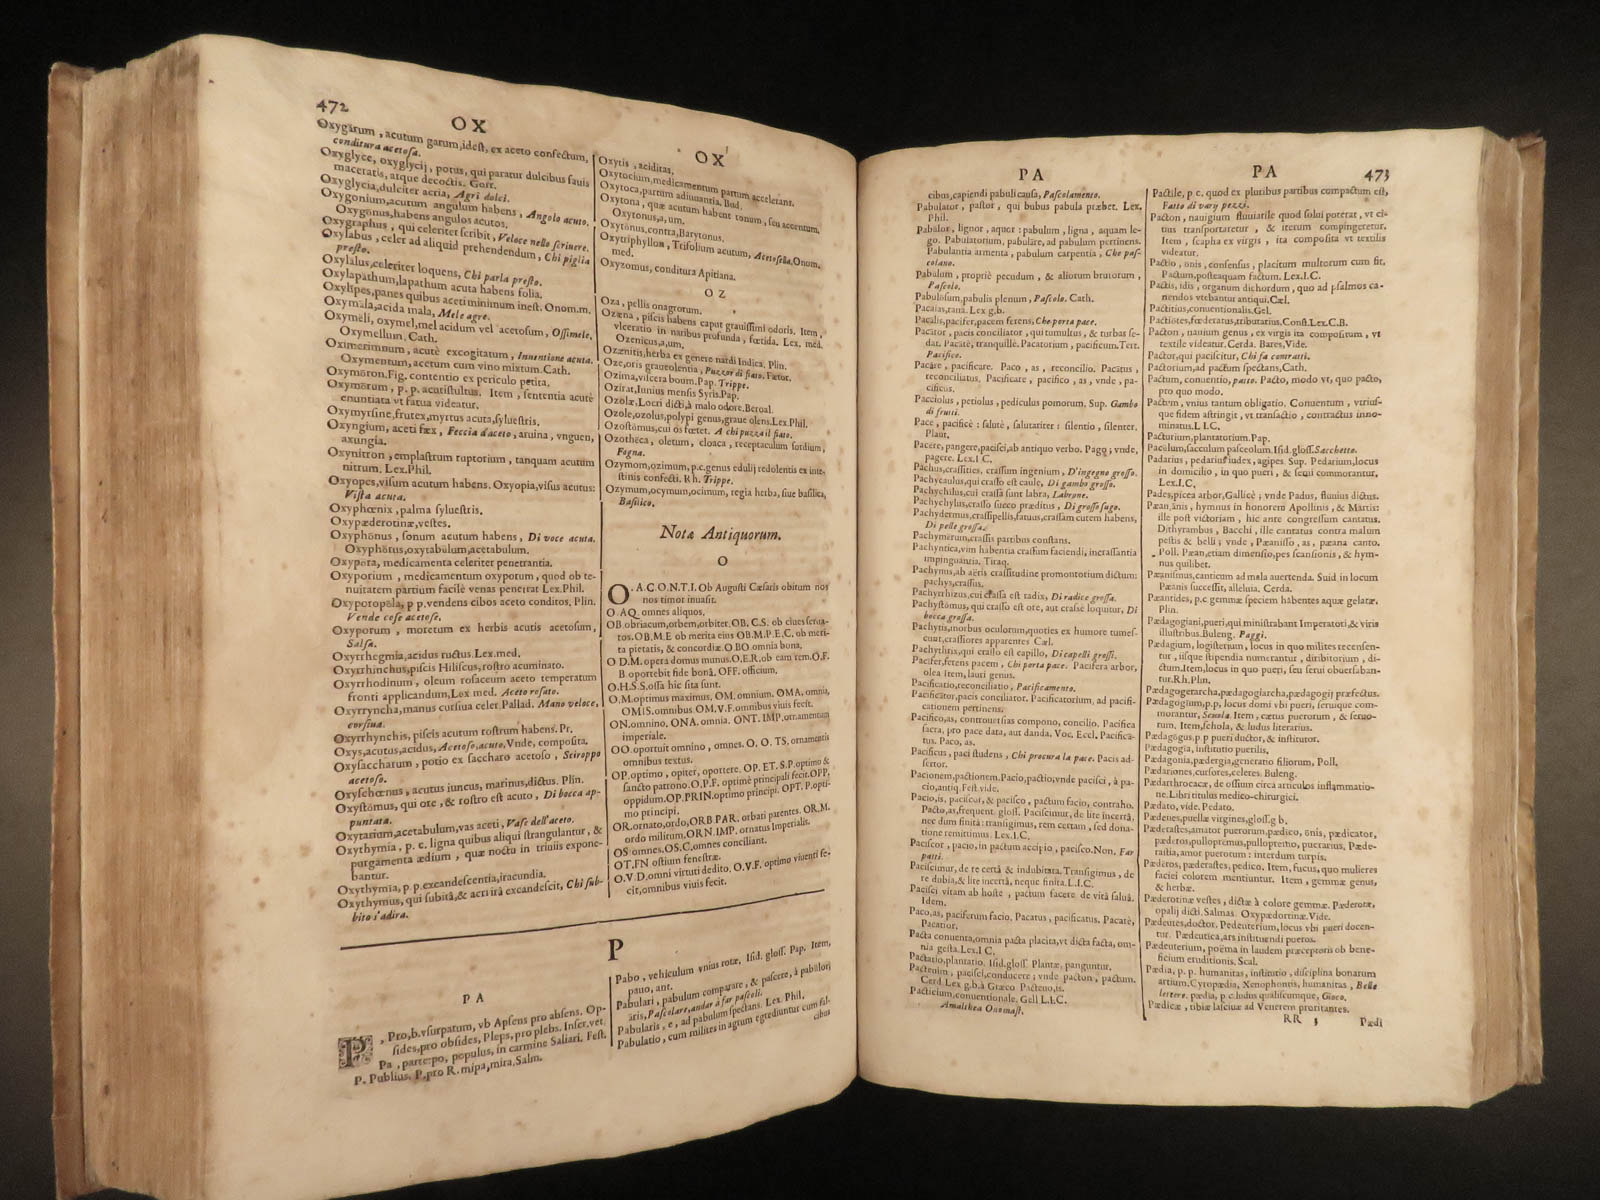 472
OX
Oxygarum, acutum garum, idest, ex aceto confectum,
conditura acetosa.
Oxyglyce, oxyglycij, potus, qui paratur dulcibus fauis
maceratis, atque decoctis. Gorr.
Oxyglycia, dulciter acria, Agri dolci.
Oxygonium, acutum angulum habens, Angolo acuto.
Oxygŏnus, habens angulos acutos.
Oxygraphus, qui celeriter scribit, Veloce nello scriuere.
Oxylabus, celer ad aliquid prehendendum, Chi piglia
presto.
Oxylălus, celeriter loquens, Chi parla presto.
Oxylapathum, lapathum acuta habens folia.
Oxylipes, panes quibus aceti minimum inest. Onom. m.
Oxymăla, acida mala, Mele agre.
Oxymĕli, oxymel, mel acidum vel acetosum, Ossimele.
Oxymellum, Cath.
Oximerimnum, acutè excogitatum, Inuentione acuta.
Oxymentum, acetum cum vino mixtum. Cath.
Oxymōron. Fig. contentio ex periculo petita.
Oxymōrum, p. p. acutistultus. Item, sententia acutè
enuntiata vt fatua videatur.
Oxymyrsine, frutex, myrtus acuta, syluestris.
Oxyngium, aceti fæx, Feccia d'aceto, aruina, vnguen,
axungia.
Oxynitron, emplastrum ruptorium, tanquam acutum
nitrum. Lex. Phil.
Oxyopes, visum acutum habens. Oxyopia, visus acutus:
Vista acuta.
Oxyphœnix, palma syluestris.
Oxypæderotinæ, vestes.
Oxyphōnus, sonum acutum habens, Di voce acuta.
Oxyphōrus, oxytabŭlum, acetabulum.
Oxypŏra, medicamenta celeriter penetrantia.
Oxyporium, medicamentum oxyporum, quod ob te-
nuitatem partium facilè venas penetrat Lex. Phil.
Oxyporopōla, p p. vendens cibos aceto conditos. Plin.
Vende cose acetose.
Oxyporum, moretum ex herbis acutis acetosum,
Salsa.
Oxyrrhegmia, acidus ructus. Lex. med.
Oxyrrhinchus, piscis Hiliscus, rostro acuminato.
Oxyrrhodinum, oleum rosaceum aceto temperatum
fronti applicandum, Lex med. Aceto rosato.
Oxyrryncha, manus cursiua celer. Pallad. Mano veloce,
corsiua.
Oxyrrhynchis, piscis acutum rostrum habens. Pr.
Oxys, acutus, acidus, Acetoso, acuto, Vnde, composita.
Oxysaccharum, potio ex saccharo acetoso, Sciroppo
acetoso.
Oxyschœnus, acutus iuncus, marinus, dictus. Plin.
Oxystŏmus, qui ore, & rostro est acuto, Di bocca ap-
puntata.
Oxytarium, acetabulum, vas aceti, Vase dell'aceto.
Oxythymia, p. c. ligna quibus aliqui strangulantur, &
purgamenta ædium, quæ noctu in triuiis expone-
bantur.
Oxythymia, p p. excandescentia, iracundia.
Oxythymus, qui subitâ, & acri irâ excandescit, Chi sub-
bito s'adira.
OX
Oxytis, aciditas,
Oxytocium, medicamentum partum accelerans.
Oxytoca, partum adiuuantia. Bud.
Oxytona, quæ acutum habent tonum, seu accentum.
Oxytonus, a, um.
Oxytōnus, contra, Barytonus.
Oxytriphyllon, Trifolium acutum, Acetosella. Onom.
med.
Oxyzomus, conditura Apitiana.
OZ
Oza, pellis onagrorum.
Ozæna, piscis habens caput grauissimi odoris. Item,
vlceratio in naribus profunda, fœtida. Lex. med.
Ozenicus, a, um.
Ozænitis, herba ex genere nardi Indica. Plin.
Oze, oris graueolentia, Puzzor di fiato. Fœtor.
Ozima, viscera boum. Pap. Trippe.
Ozirat, Iunius mensis Syris. Pap.
Ozŏlæ, Locri dicti, à malo odore. Beroal.
Ozole, ozolus, polypi genus, graue olens. Lex. Phil.
Ozostŏmus, cui os fœtet. A chi puzza il fiato.
Ozothĕca, oletum, cloaca, receptaculum sordium,
Fogna.
Ozymom, ozimum, p.c. genus edulij redolentis ex inte-
stinis confecti. Rh. Trippe.
Ozymum, ocymum, ocimum, regia herba, siue basilica,
Basilico.
Notæ Antiquorum.
O
O. A. C. O. N. T. I. Ob Augusti Cæsaris obitum nos
nos timor inuasit.
O AQ. omnes aliquos.
OB. obriacum, orbem, orbiter. OB, C. S. ob ciues serua-
tos. OB. M. E ob merita eius OB. M. P. E, C. ob meri-
ta pietatis, & concordiæ. O BO omnia bona,
O D. M. opera domus munus. O. E. R. ob eam rem. O. F.
B. oportebit fide bonâ. OFF. officium,
O. H. S. S. ossa hic sita sunt.
O. M. optimus maximus, OM. omnium. OMA. omnia,
OMIS. omnibus OM. V. F. omnibus viuis fecit.
ON. omnino. ONA. omnia. ONT. IMP. ornamentum
imperiale.
OO. oportuit omnino, omnes. O. O. TS. ornamentis
omnibus textus.
OP. optimo, opiter, oportere. OP. ET. S. P. optimo &
sancto patrono. O. P. F. optimè principali fecit. OPP.
oppidum. OP. PRIN. optimo principi. OPT. P. opti-
mo principi.
OR. ornato, ordo, ORB PAR. orbati parentes. OR. M.
ordo militum. ORN. IMP. ornatus Imperialit.
OS: omnes. OS. C, omnes conciliant.
OT. FN ostium fenestræ.
O. V. D. omni virtuti dedito. O. V. F. optimo viuenti fe-
cit, omnibus viuis fecit.
P
PA
P, Pro, b. vsurpatum, vb Apsens pro absens. Op-
sides, pro obsides, Pleps, pro plebs. Inscr. vet.
Pa, parte: po, populus, in carmine Saliari. Fest.
P. Publius. P. pro R. mipa, mira. Salm.
Pabo, vehiculum vnius rotæ. Isid. gloss. Pap. Item,
pauo, ant.
Pabulari, pabulum comparare, & pascere, à pabŭlor,
āris, Pascolare, andar à far pascoli.
Pabularis, e, ad pabulum spectans. Lex. Phil.
Pabulatio, cum milites in agrum egrediuntur cum fal-
cibus
PA
cibus, capiendi pabuli causa, Pascolamento.
Pabulator, pastor, qui bubus pabula præbet. Lex.
Phil.
Pabŭlor, lignor, aquor: pabulum, ligna, aquam le-
go. Pabulatorium, pabulāre, ad pabulum pertinens.
Pabulantia armenta, pabulum carpentia, Che pas-
colano.
Pabulum, propriè pecudum, & aliorum brutorum,
Pascolo.
Pabulōsum, pabulis plenum, Pascolo. Cath.
Pacaias, rana. Lex g. b.
Pacalis, pacifer, pacem ferens, Che porta pace.
Pacātor, pacis conciliator, qui tumultus, & turbas se-
dat. Pacatè, tranquillè. Pacatorium, pacificum. Tert.
Pacifico.
Pacāre, pacificare. Paco, as, reconcilio. Pacātus,
reconciliatus. Pacificare, pacifico, as, vnde, pa-
cificus.
Pacciolus, petiolus, pediculus pomorum. Sup. Gambo
di frutti.
Pace, pacificè: salutè, salutariter: silentio, silenter.
Plaut.
Pacĕre, pangere, pacisci, ab antiquo verbo. Pago, vnde,
pagere. Lex. I. C.
Pachus, crassities, crassum ingenium, D'ingegno grosso.
Pachycaulus, qui crasso est caule, Di gambo grosso.
Pachychilus, cui crassa sunt labra, Labrone.
Pachychylus, crasso succo præditus, Di grosso sugo.
Pachydermus, crassipellis, fatuus, crassam cutem habens,
Di pelle grossa.
Pachymĕrum, crassis partibus constans.
Pachyntica, vim habentia crassum faciendi, incrassantia
impinguantia. Tiraq.
Pachynus, ab aëris crassitudine promontorium dictum:
pachys, crassus.
Pachyrrhizus, cui crassa est radix, Di radice grossa.
Pachystŏmus, qui crasso est ore, aut crassè loquitur, Di
bocca grossa.
Pachytis, morbus oculorum, quoties ex humore tumes-
cunt, crassiores apparentes Cæl.
Pachythrix, qui crasso est capillo, Di capelli grossi.
Pacifer, ferens pacem, Chi porta pace. Pacifera arbor,
olea Item, lauri genus.
Pacificatio, reconciliatio, Pacificamento.
Pacificātor, pacis conciliator. Pacificatorium, ad pacifi-
cationem pertinens.
Pacifico, as, controuersias compono, concilio. Pacifica
sacra, pro pace data, aut danda. Voc. Eccl. Pacifica-
tus. Paco, as.
Pacificus, paci studens, Chi procura la pace. Pacis ad-
sertor.
Pacionem, pactionem. Pacio, pactio; vnde pacisci, à pa-
cio, antiq. Fest. vide.
Pacio, is, paciscor, & pacisco, pactum facio, contraho.
Pacto, as, frequent. gloss. Paciscimur, de lite incertâ,
nec dum finitâ: transigimus, rem certam, sed dona-
tione remittimus. Lex. I. C.
Paciscor, pacio, in pactum accipio, pacisco. Non. Far
patti.
Paciscimur, de re certâ & indubitata. Transigimus, de
re dubia, & lite incertâ, neque finita. L. I. C.
Pacisci vitam ab hoste, pactum facere de vitâ saluâ.
Idem.
Paco, as, paciferum facio, Pacatus, pacificatus. Pacatè,
Pacatior.
Pacta conuenta, omnia pacta placita, vt dicta facta, om-
nia gesta. Lex. I C.
Pactatio, plantatio. Isid. gloss. Plantæ, panguntur.
Pacteulm, pacisci, conducere; vnde pacton, pactum.
Cerd. Lex g. b. à Græco Pacteuo, is.
Pacticium, conuentionale. Gell L. I. C.
Amalthea Onomast.
PA
473
Pactile, p c. quod ex pluribus partibus compactum est,
Fatto di varij pezzi.
Pacton, nauigium fluuiatile quod solui poterat, vt ci-
tius transportaretur, & iterum compingeretur.
Item, scapha ex virgis, ita composita vt textilis
videatur.
Pactio, ōnis, consensus, placitum multorum cum fit.
Pactum, posteaquam factum. Lex. I. C.
Pactis, idis, organum dichordum, quo ad psalmos ca-
nendos vtebantur antiqui. Cæl.
Pactitius, conuentionalis. Gel.
Pactiotes, fæderatus, tributarius, Const. Lex. C. B.
Pacton, nauium genus, ex virgis ita compositum, vt
textile videatur. Cerda. Bares, Vide.
Pactor, qui paciscitur, Chi fa contratti.
Pactorium, ad pactum spectans, Cath.
Pactum, conuentio, patto. Pacto, modo vt, quo pacto,
pro quo modo.
Pactum, vnius tantum obligatio. Conuentum, vtrius-
que fidem astringit, vt transactio, contractus inno-
minatus. L I C.
Pacturium, plantatorium. Pap.
Pacŭlum, sacculum pasceolum. Isid. gloss. Sacchetto.
Padarius, pedarius iudex, agipes. Sup. Pedarium, locus
in domicilio, in quo pueri, & serui commorantur,
Lex. I. C,
Pades, picea arbor, Gallicè; vnde Padus, fluuius dictus.
Pæan, ānis, hymnus in honorem Apollinis, & Martis:
ille post victoriam, hic ante congressum cantatus.
Dithyrambus, Bacchi, ille cantatus contra malum
pestis & belli; vnde, Pæanisso, as, pæana canto.
Poll. Pæan, etiam dimensio, pes scansionis, & hym-
nus quilibet.
Pæanismus, canticum ad mala auertenda. Suid in locum
Pæanis successit, alleluia. Cerda.
Pæantides, p.c gemmæ speciem habentes aquæ gelatæ.
Plin.
Pædagogiani, pueri, qui ministrabant Imperatori, & viris
illustribus. Buleng. Paggi.
Pædagium, logisterium, locus in quo milites recensen-
tur, iisque stipendia numerantur, diribitorium, di-
ctum. Item, locus in quo pueri, seu serui obuersaban-
tur. Rh. Plin.
Pædagogarcha, pædagogiarcha, pædagogij præfectus.
Pædagogium, p.p, locus domi vbi pueri, seruique com-
morantur, Scuola. Item, cœtus puerorum, & seruo-
rum. Item, schola, & ludus literarius.
Pædagōgus, p p pueri ductor, & institutor.
Pædagogia, institutio puerilis.
Pædagonia, pædergia, generatio filiorum, Poll.
Pædariones, cursores, celeres. Buleng.
Pædarthrocacæ, de ossium circa articulos inflammatio-
ne. Libri titulus medico-chirurgici.
Pædato, vide, Pedato.
Pædenes, puellæ virgines, gloss. g b.
Pæderastes, amator puerorum, pædico, ōnis, pædicator,
pæderos, pulloptremus, pulloptemo, puerarius, Pæde-
rastia, amor puerorum: interdum turpis.
Pæderos, pæderastes, pedico. Item, fucus, quo mulieres
faciei colorem mentiuntur. Item, gemmæ genus,
& herbæ.
Pæderotinæ vestes, dictæ à colore gemmæ. Pæderotæ,
opalij dicti. Salmas. Oxypædorinæ. Vide.
Pædeutes, doctor. Pedeuterium, locus vbi pueri docen-
tur. Pædeutica, ars instituendi pueros.
Pædeuterium, poëma in laudem præceptoris ob bene-
ficium eruditionis. Scal.
Pædia, p. p. humanitas, institutio, disciplina bonarum
artium. Cyropædia, Xenophontis, humanitas, Belle
lettere. pædia, p c. ludus qualiscumque, Gioco.
Pædicæ, tibiæ lasciuæ ad Venerem proritantes.
RR 3
Pædi